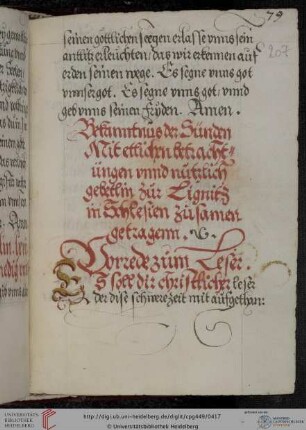 79
207.
seinen göttlichen seegen erlasse vnns sein
antlitz erleuchten, das wir erkennen auf
erden seinen wege. Es segne vnns got
vnnser got. Es segne vnns got, vnnd
geb vnns seinen fryden. Amen.
Bekanntnus der Sünden
Mit ettlichen betracht-
ungen vnnd nützlich
gebetlin zür Lignitz
in Schlesien zusamen
getragenn.
Vorrede zum Leser.
Es solt dir christlicher leser
der dise schwere zeit mit aufgethan:
UNIVERSITÄTS-
BIBLIOTHEK
HEIDELBERG
http://digi.ub.uni-heidelberg.de/diglit/cpg449/0417
© Universitätsbibliothek Heidelberg